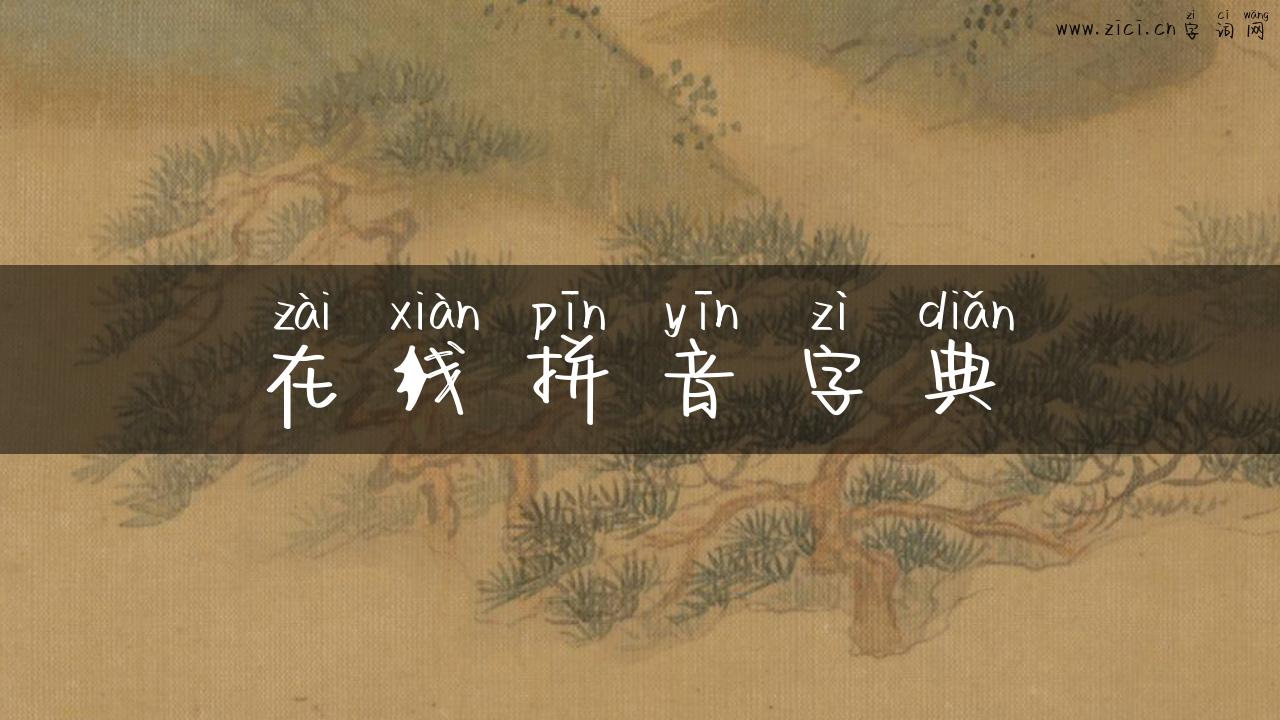 zì cí wǎng
www.zici.cn 字 词 网
zài xiàn pīn yīn zì diǎn
在 线 拼 音 字 典